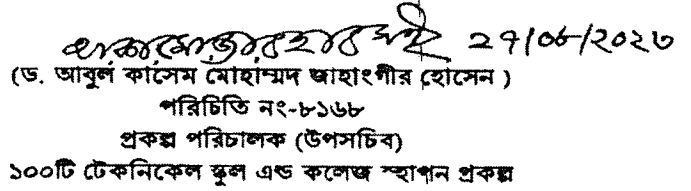 ২৭/০৮/২০২৩
(ড. আবুল কাসেম মোহাম্মদ জাহাংগীর হোসেন )
পরিচিতি নং-৮১৬৮
প্রকল্প পরিচালক (উপসচিব)
১০০টি টেকনিকেল স্কুল এন্ড কলেজ স্হাপন প্রকল্প